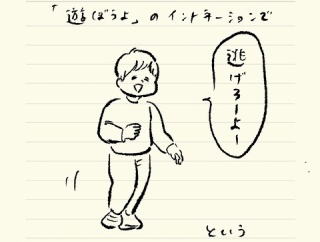 「遊ぼうよ」のイントネーションで
逃げろーよー
という